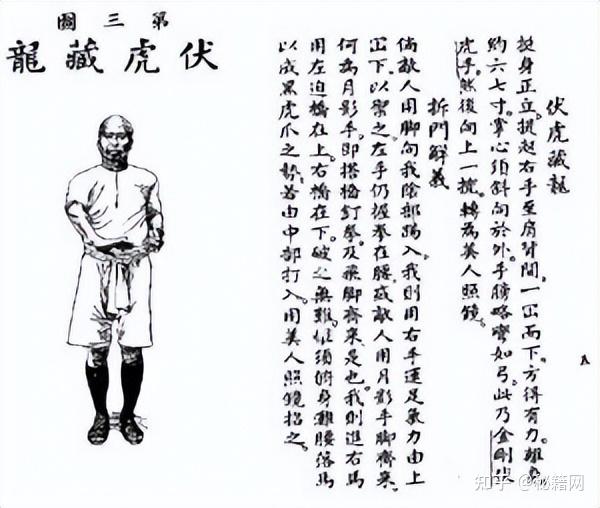 第三圖
伏虎藏龍
伏虎藏龍
挺身正立。提起右手至肩背間。一冚而下。方得有力。離身
約六七寸。掌心須斜向於外。手膀略彎如弓。此乃金剛伏
虎手。然後向上一 轉為美人照鏡。
拆門解義
倘敵人用脚向我陰部踢入。我則用右手運足氣力由上
冚下。以禦之。左手仍握拳在腰。或敵人用月影手脚齊來。
何為月影手。即搭槍釘拳。及飛脚齊來是也。我則進右馬
用左迫橋在上。右橋在下。破之無難。惟須俯身 腰落馬
以成黑虎爪之勢。若由中部打入。用美人照鏡招之。
八
知乎 @秘籍网